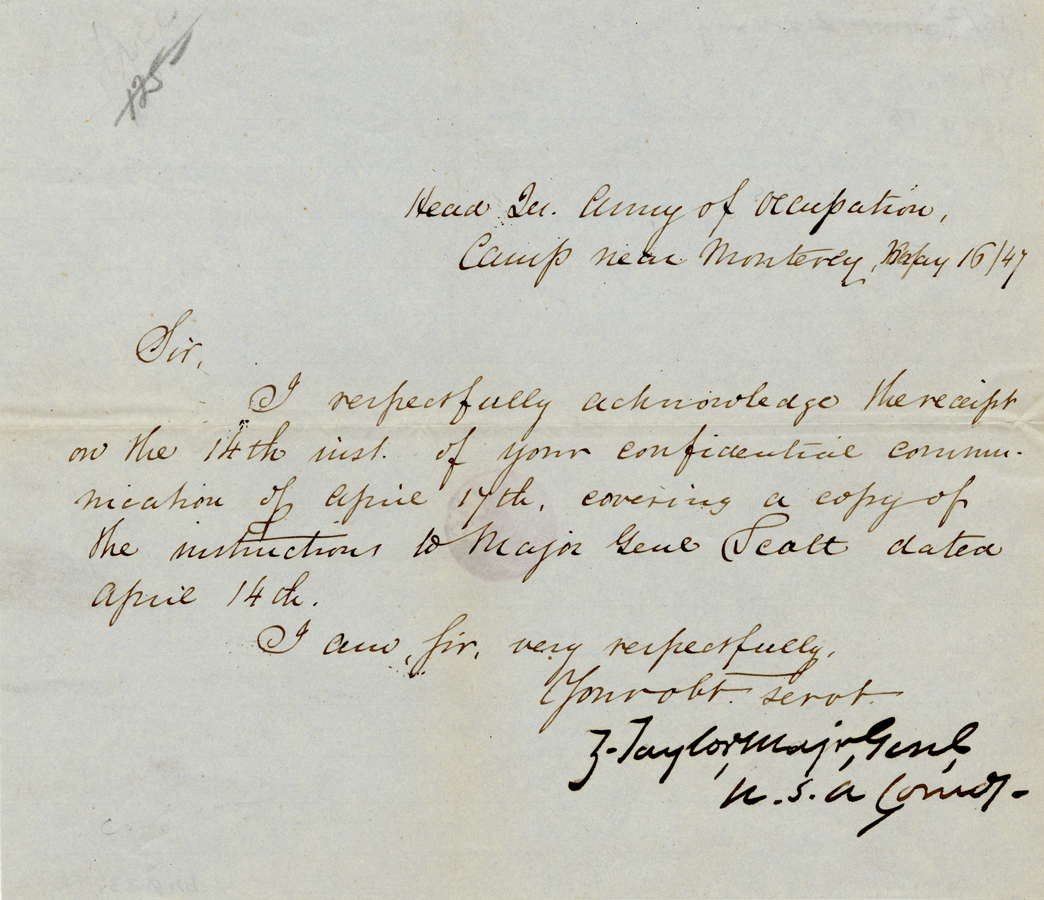 125
Head Qu. Army of Occupation,
Camp near Monterey, May 16/47
Sir,
I respectfully acknowledge the receipt
on the 14th inst. of your confidential commu-
nication of April 17th, covering a copy of
the instructions to Major Genl Scott dated
April 14th.
I am, Sir, very respectfully,
Your obt. servt.
Z. Taylor, Majr, Genl,
U. S. A Comdg-